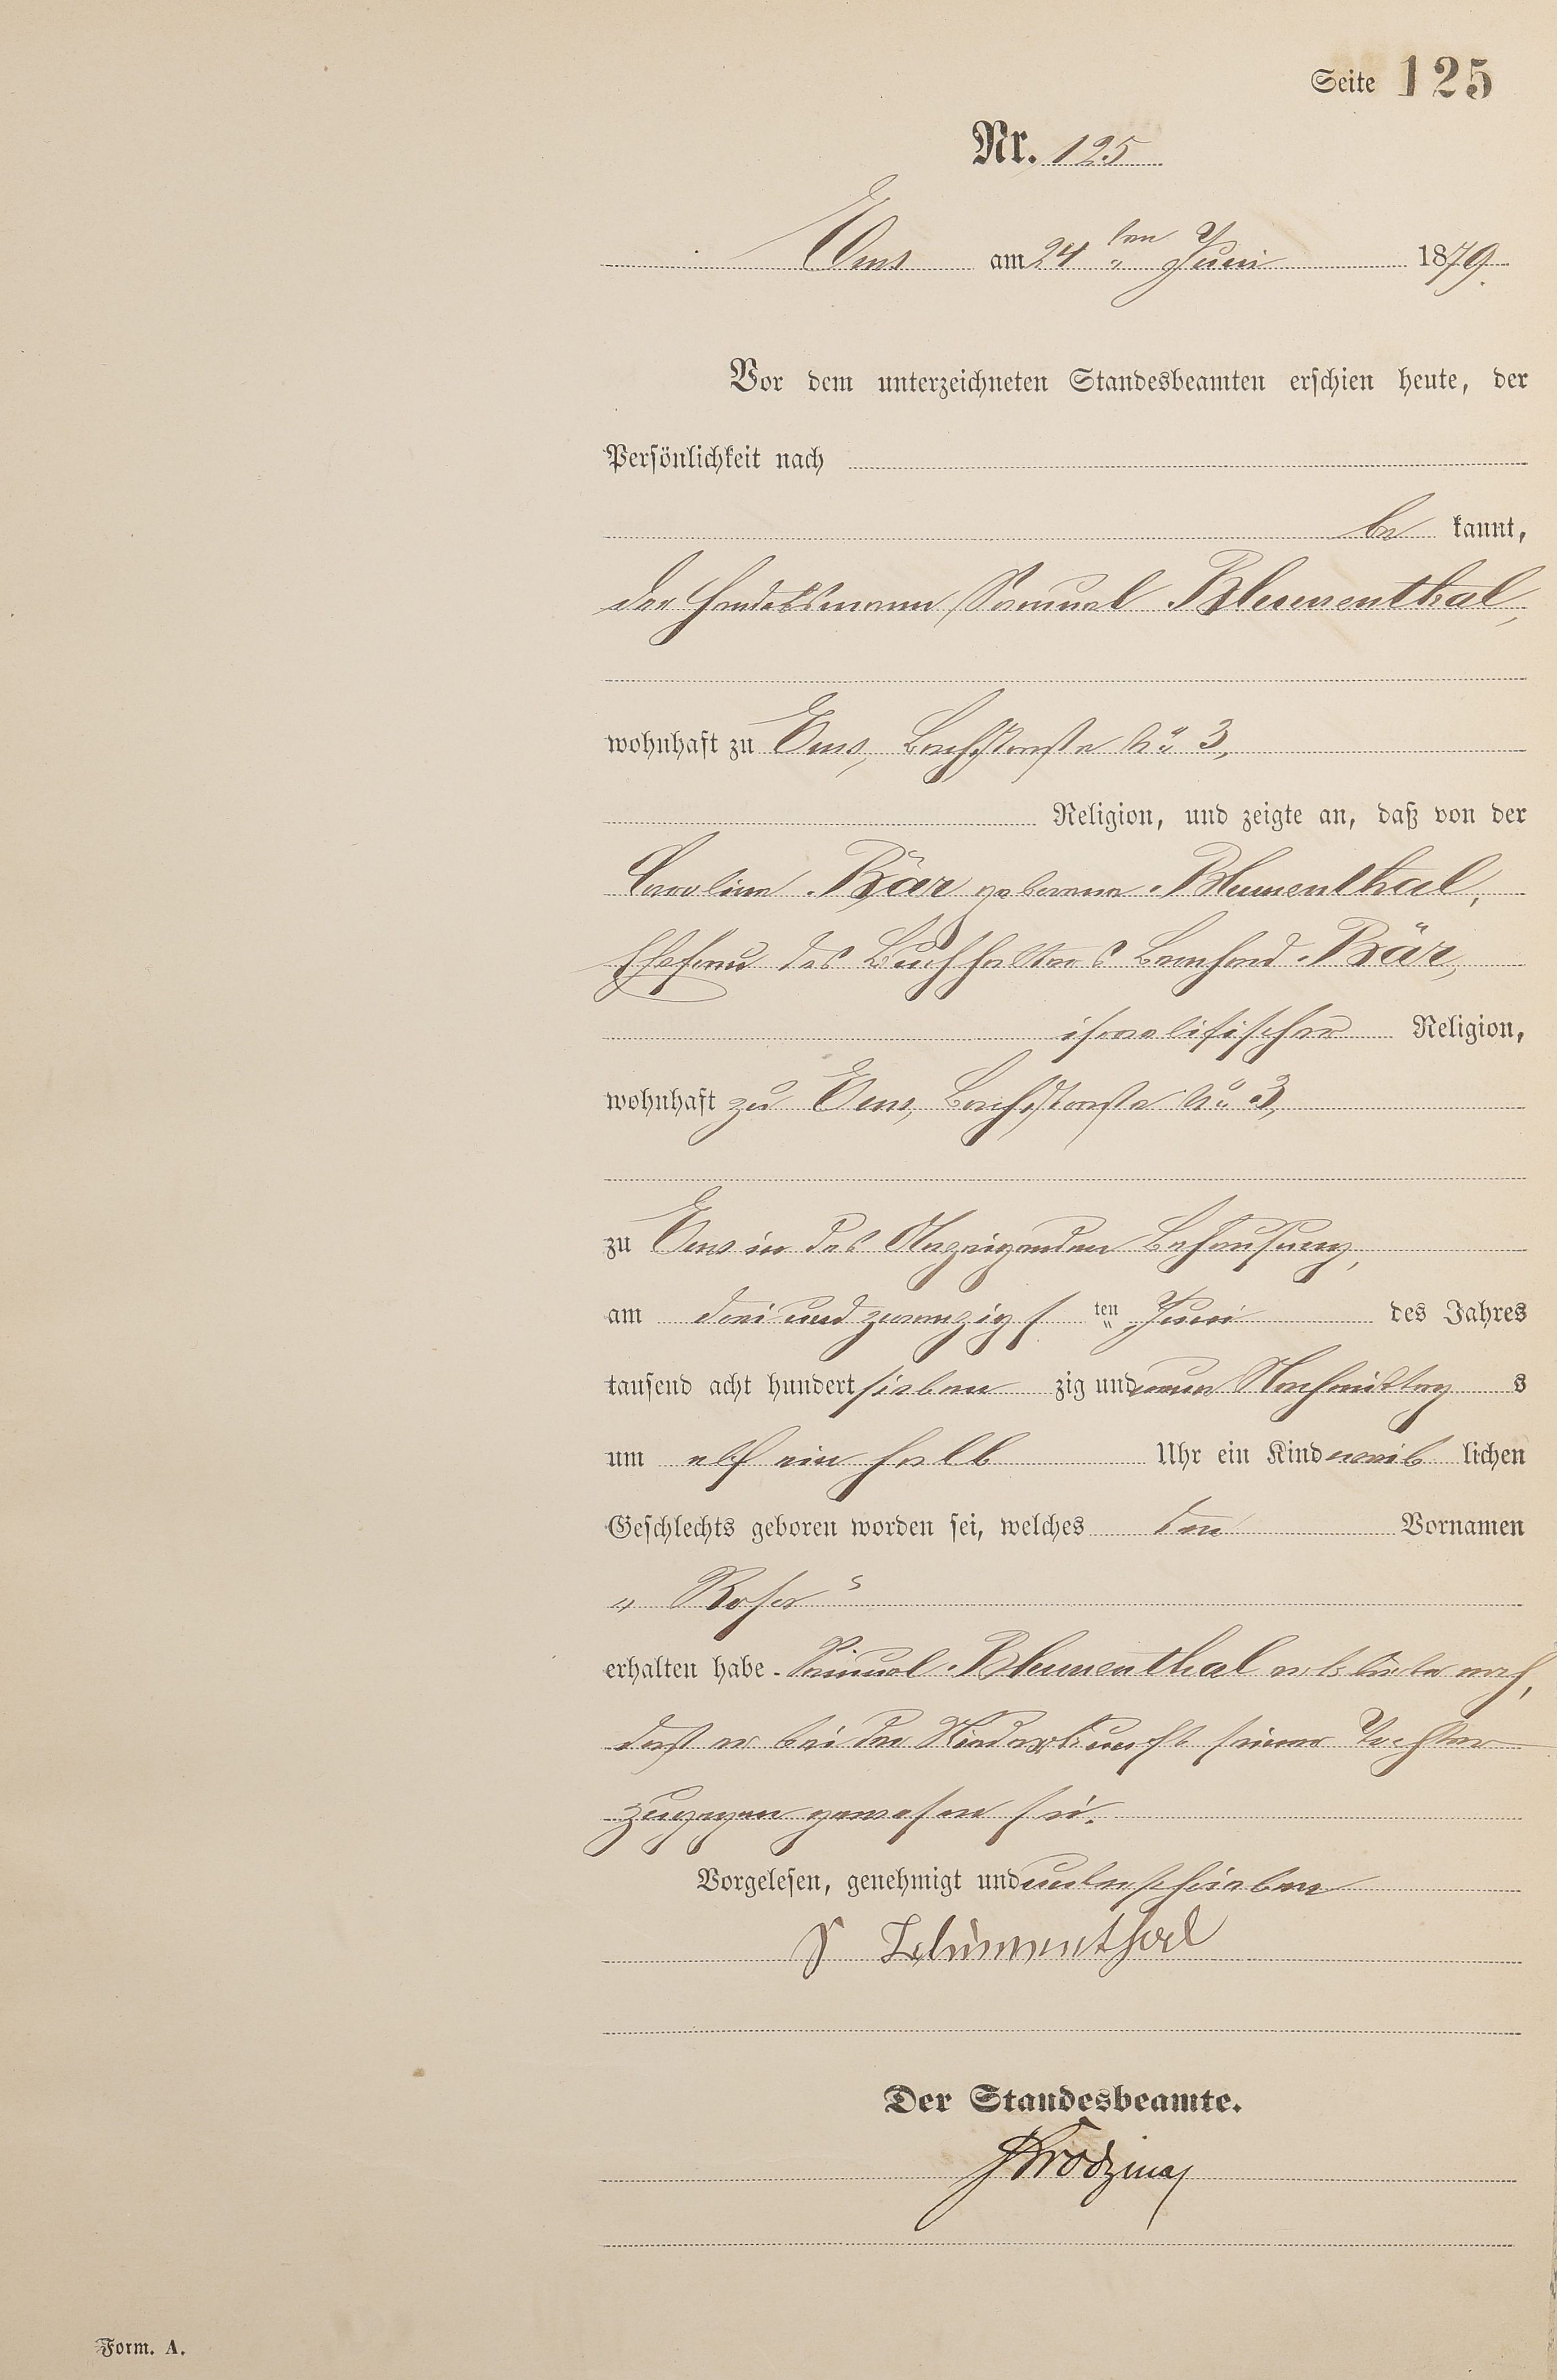 Seite 125
Nr. 125
Ems am 24ten Juni 1879.
Vor dem unterzeichneten Standesbeamten erschien heute, der
Persönlichkeit nach
be kannt,
der Handelsmann Samuel Blumenthal,
wohnhaft zu Ems, Bachstraße No 3,
Religion, und zeigte an, daß von der
Caroline Bär geborene Blumenthal,
Ehefrau des Buchhalters Bernhard Bär,
israelitischer Religion,
wohnhaft zu Ems, Bachstraße No 3,
zu Ems in des Anzeigenden Behausung,
am drei und zwanzigs ten Juni des Jahres
tausend acht hundert sieben zig und neun Nachmittag s
um elf ein halb Uhr ein Kind weib lichen
Geschlechts geboren worden sei, welches den Vornamen
„Rosa“
erhalten habe. Samuel Blumenthal erklärte noch,
daß er bei der Niederkunft seiner Tochter
zugegen gewesen sei.
Vorgelesen, genehmigt und unterschrieben
S Blumenthal
Der Standesbeamte.
Form. A.